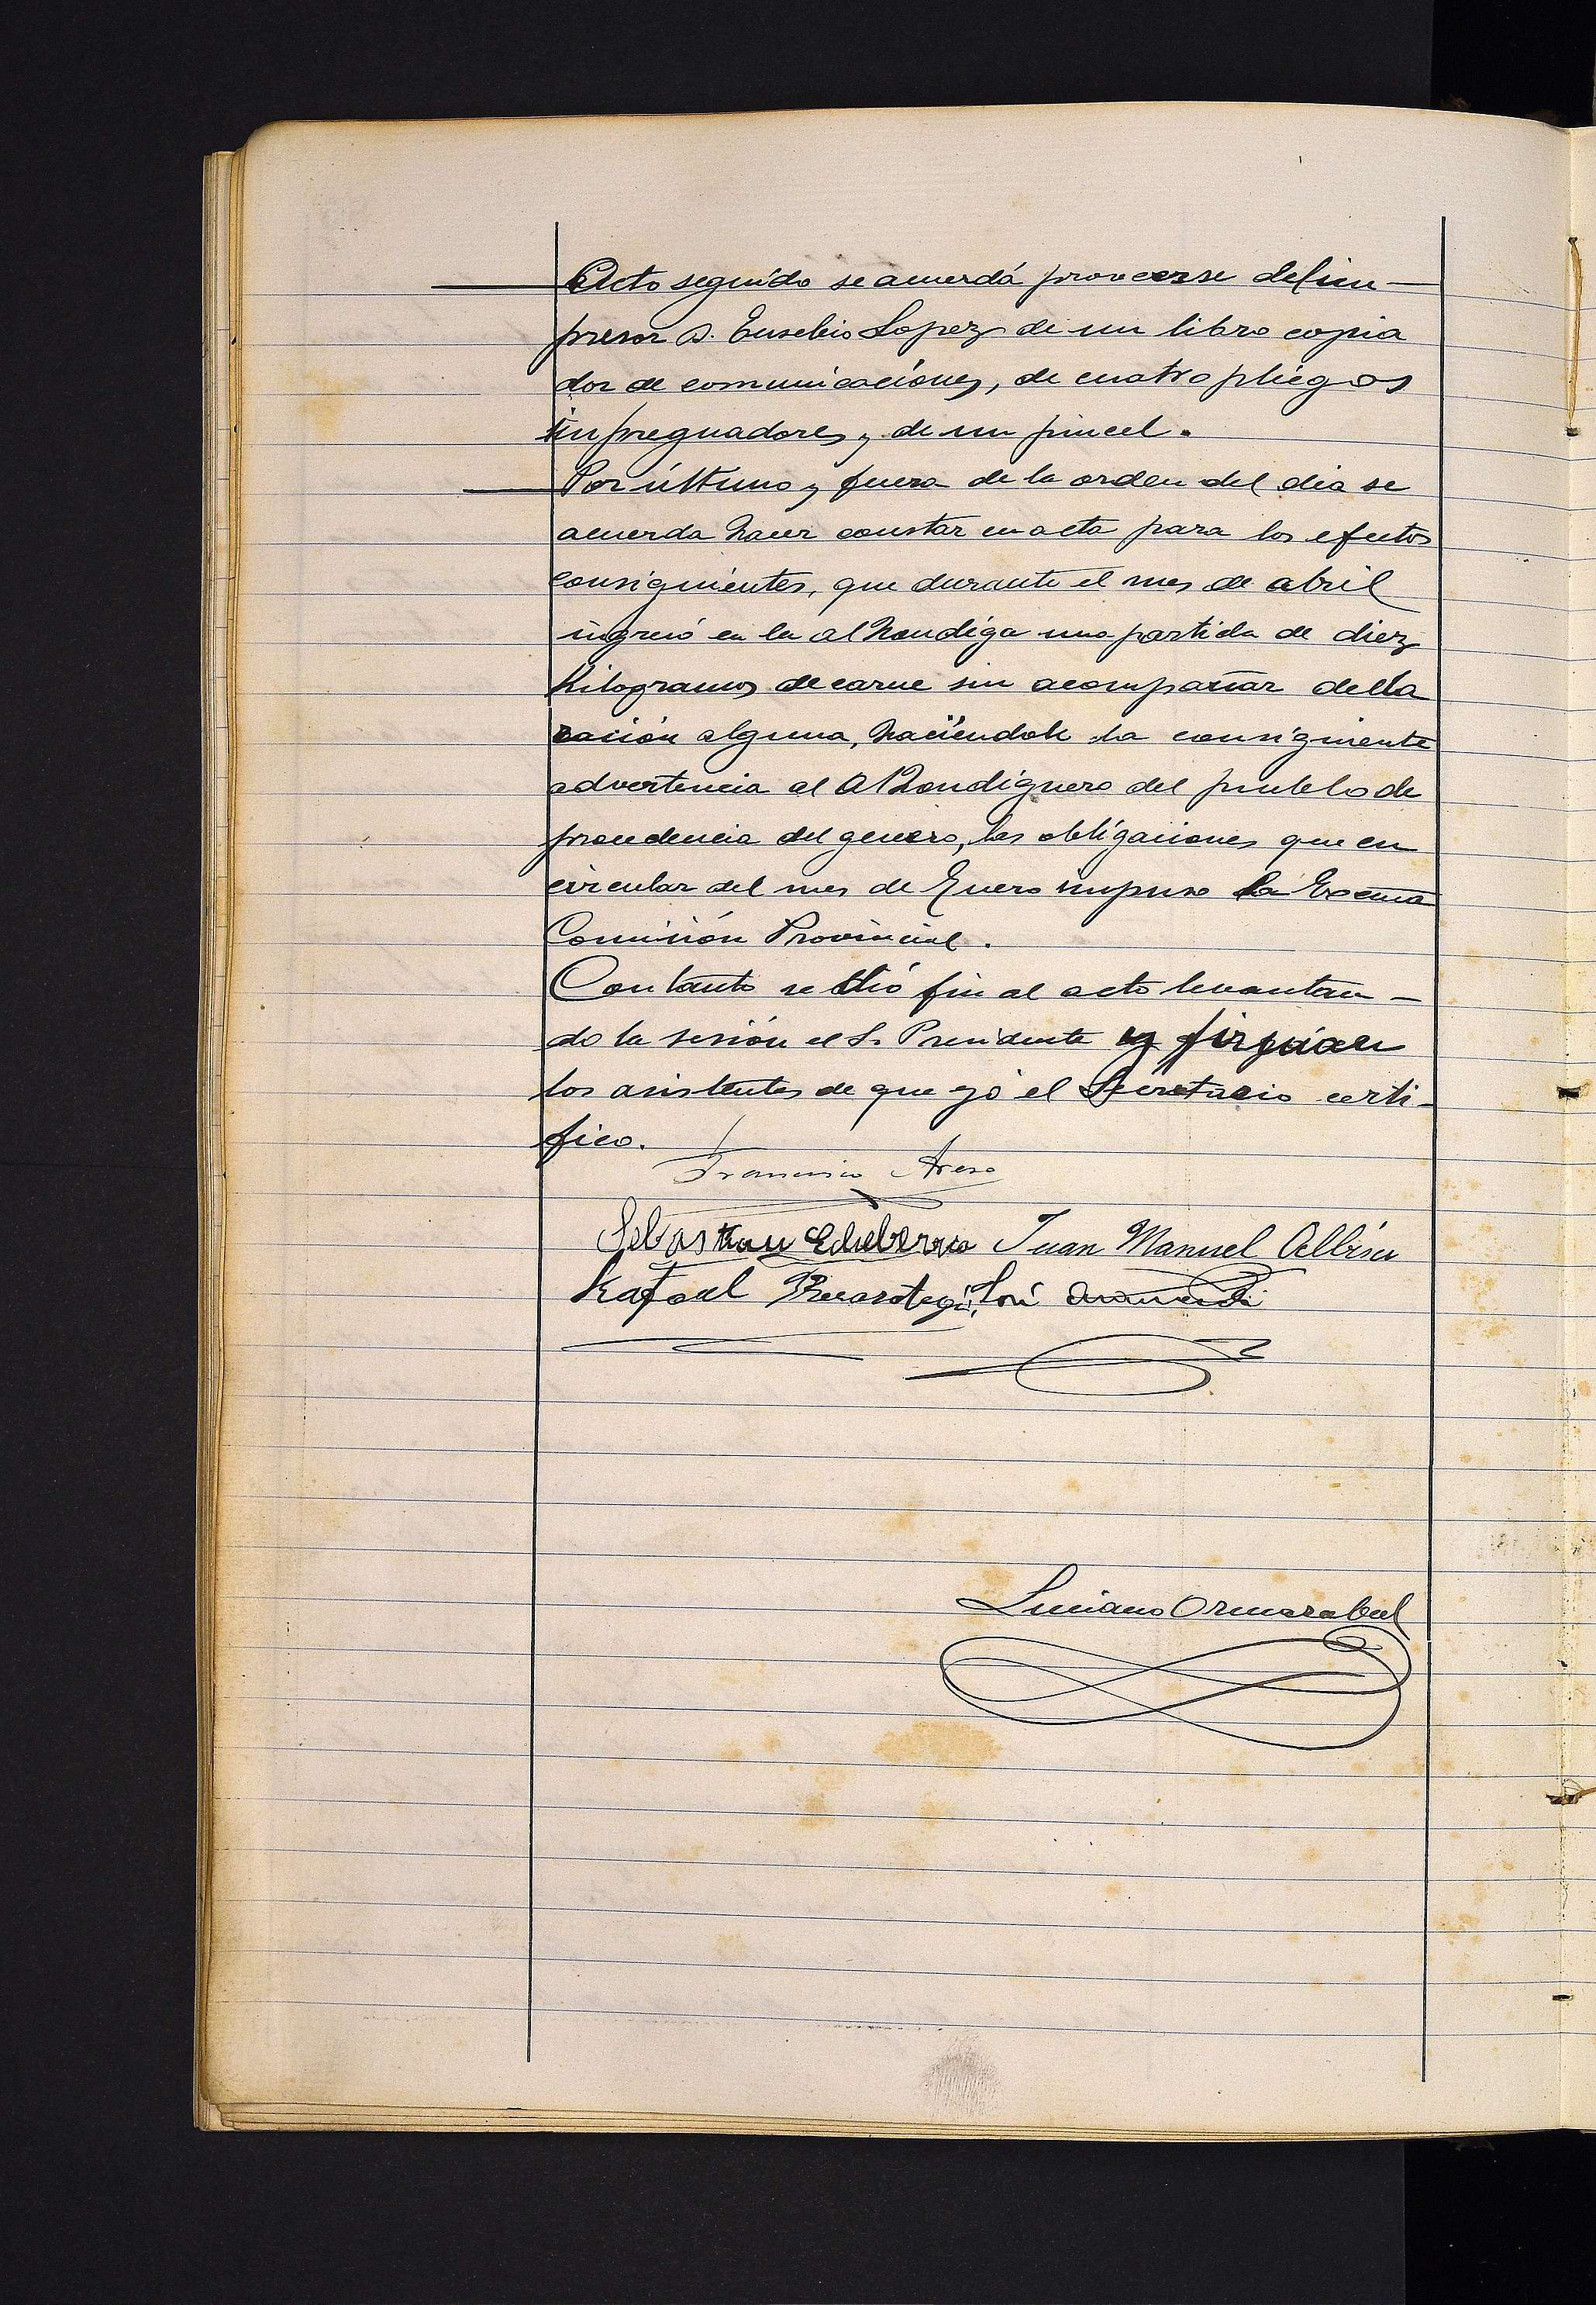 Acto seguido se acuerdá proveerse del im-
presor D. Eusebio Lopez de un libro copia
dor de comunicaciones, de cuatro pliegos
impregnadores y de un pincel.
Por último y fuera de la orden del dia se
acuerda hacer constar en acta para los efectos
consiguientes, que durante el mes de abril
ingresó en la alhondiga una partida de diez
Kilogramos de carne sin acompañar decla
ración alguna, haciéndole la consiguiente
advertencia al Alhondiguero del pueblo de
procedencia del genero, las obligaciones que en
circular del mes de Enero impuso la Excma
Comisión Provincial.
Con tanto se dió fin al acto levantan-
do la sesión el Sr Presidente y firman
los asistentes de que yo el Secretario certi-
fico.
Francisco Areso
Sebastian Echeberria Juan Manuel Albisu
Rafael Recarotegui José
Luciano Ormazabal